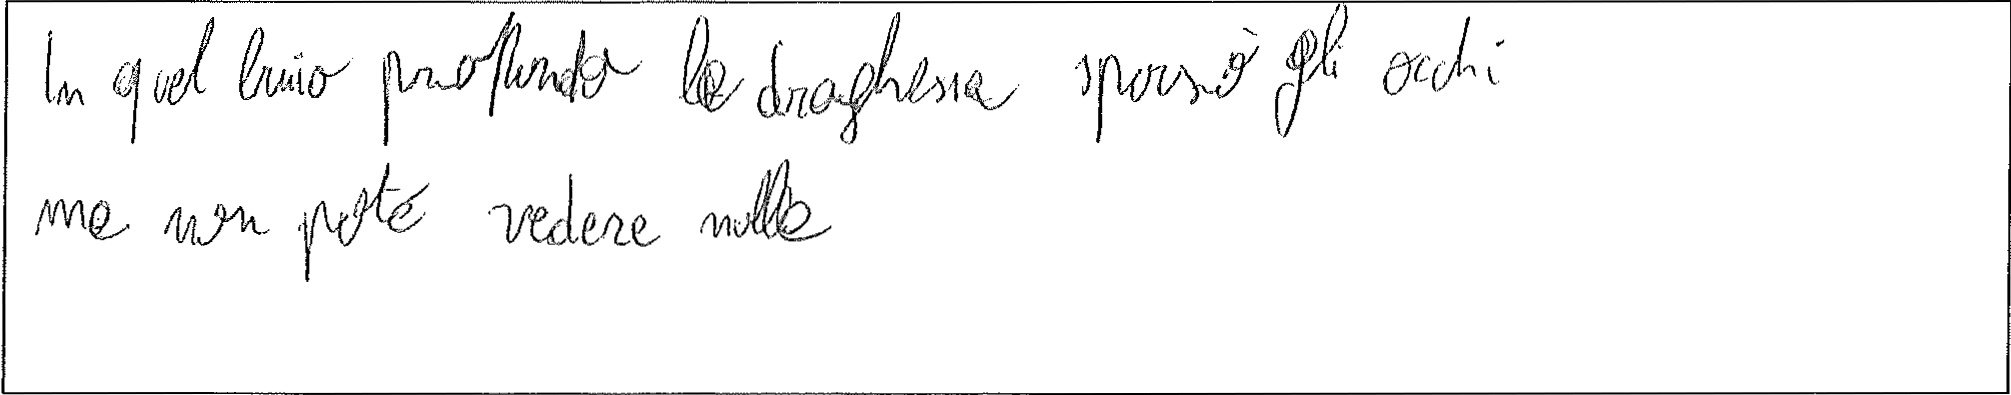 In quel buio profondo la draghessa gli occhi
ma non poté vedere nulla